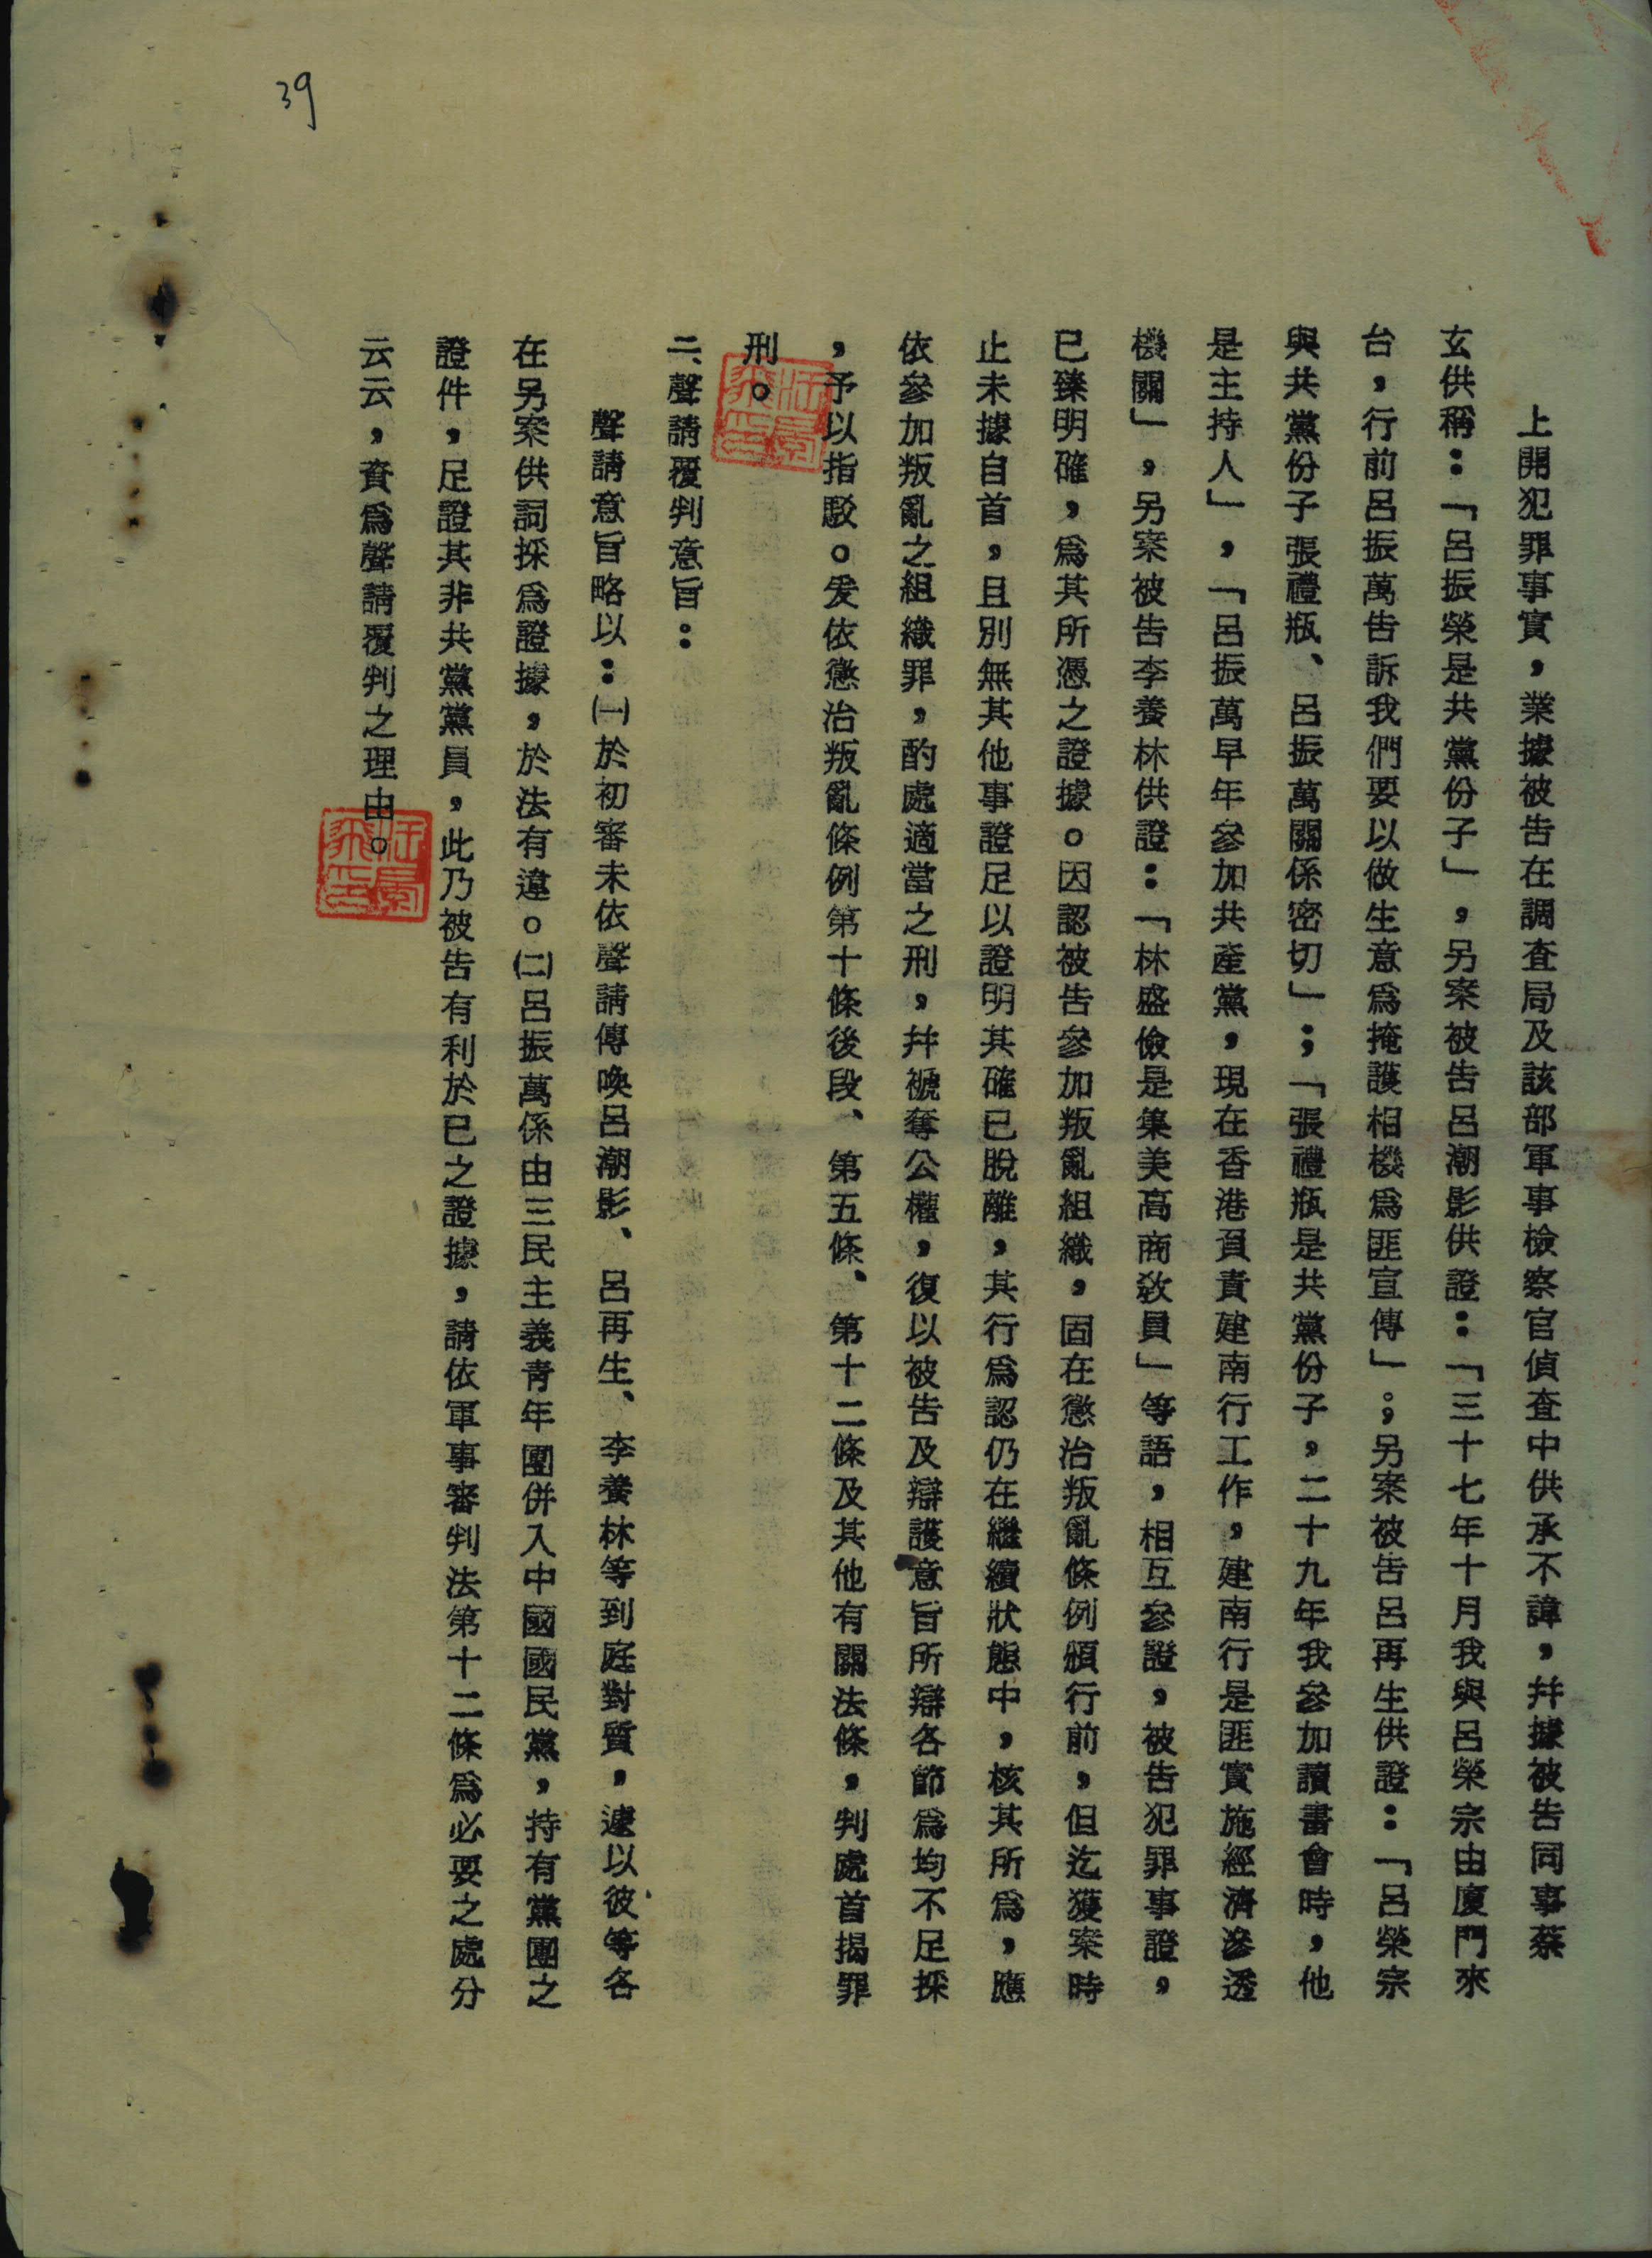 上開犯罪事實，業據被告在調查局及該部軍事檢察官偵查中供承不諱，幷據被告同事蔡
玄供稱：「呂振榮是共黨份子」，另案被告呂潮影供證：「三十七年十月我與呂榮宗由廈門來
台，行前呂振萬告訴我們要以做生意爲掩護相機爲匪宣傳」；另案被告呂再生供證：「呂榮宗
與共黨份子張禮瓶、呂振萬關係密切」；「張禮瓶是共黨份子，二十九年我參加讀書會時，他
是主持人」，「呂振萬早年參加共產黨，現在香港負責建南行工作，建南行是匪實施經濟滲透
機關」，另案被告李養林供證：「林盛儉是集美高商教員」等語，相互參證，被告犯罪事證，
已臻明確，爲其所憑之證據。因認被告參加叛亂組織，固在懲治叛亂條例頒行前，但迄獲案時
止未據自首，且別無其他事證足以證明其確已脫離，其行爲認仍在繼續狀態中，核其所爲，應
依參加叛亂之組織罪，酌處適當之刑，幷褫奪公權，復以被告及辯護意旨所辯各節爲均不足採
，予以指駁。爰依懲治叛亂條例第十條後段、第五條、第十二條及其他有關法條，判處首揭罪
刑。
二、聲請覆判意旨：
聲請意旨略以：㈠於初審未依聲請傳喚呂潮影、呂再生、李養林等到庭對質，遽以彼等各
在另案供詞採爲證據，於法有違。㈡呂振萬係由三民主義青年團併入中國國民黨，持有黨團之
證件，足證其非共黨黨員，此乃被告有利於已之證據，請依軍事審判法第十二條爲必要之處分
云云，資爲聲請覆判之理由。
39